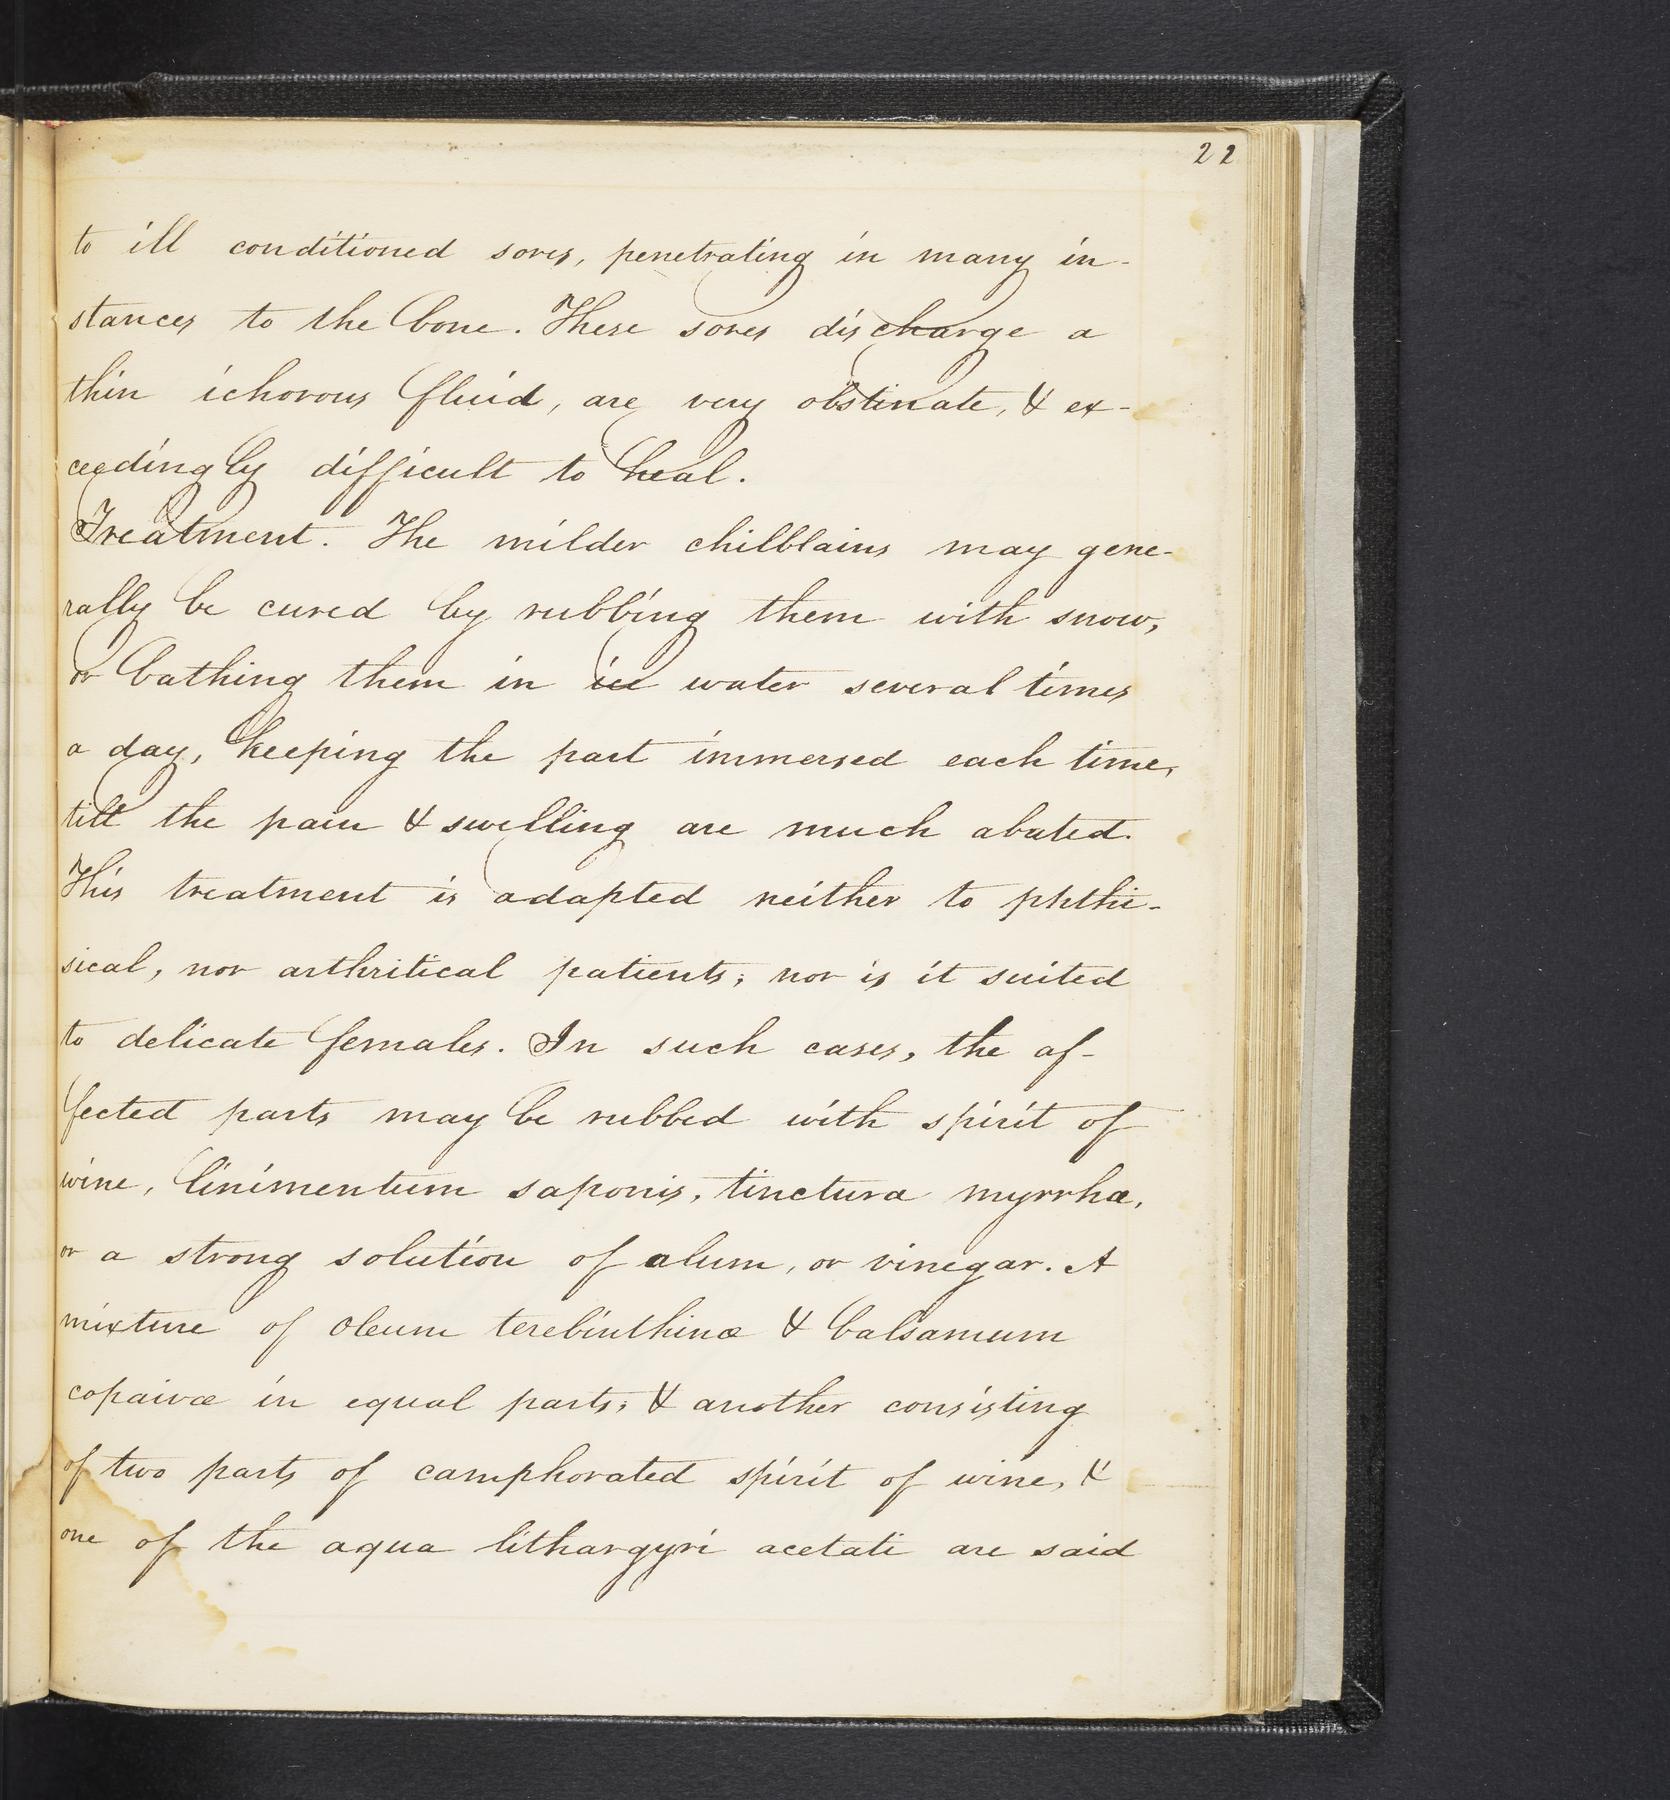 22
to ill conditioned sores, penetrating in many in-
stances to the bone. These sores discharge a
thin ichorous fluid, are very obstinate, & ex-
ceedingly difficult to heal.
Treatment. The milder chilblains may gene-
rally be cured by rubbing them with snow,
or bathing them in ice water several times
a day, keeping the part immersed each time,
till the pain & swelling are much abated.
This treatment is adapted neither to phthi-
sical, nor arthritical patients; nor is it suited
to delicate females. In such cases, the af-
fected parts may be rubbed with spirit of
wine, linimentum saponis, tinctura myrrhæ,
or a strong solution of alum, or vinegar. A
mixture of oleum terebinthinæ & balsamum
copaivæ in equal parts; & another consisting
of two parts of camphorated spirit of wine, &
one of the aqua lithargyri acetati are said